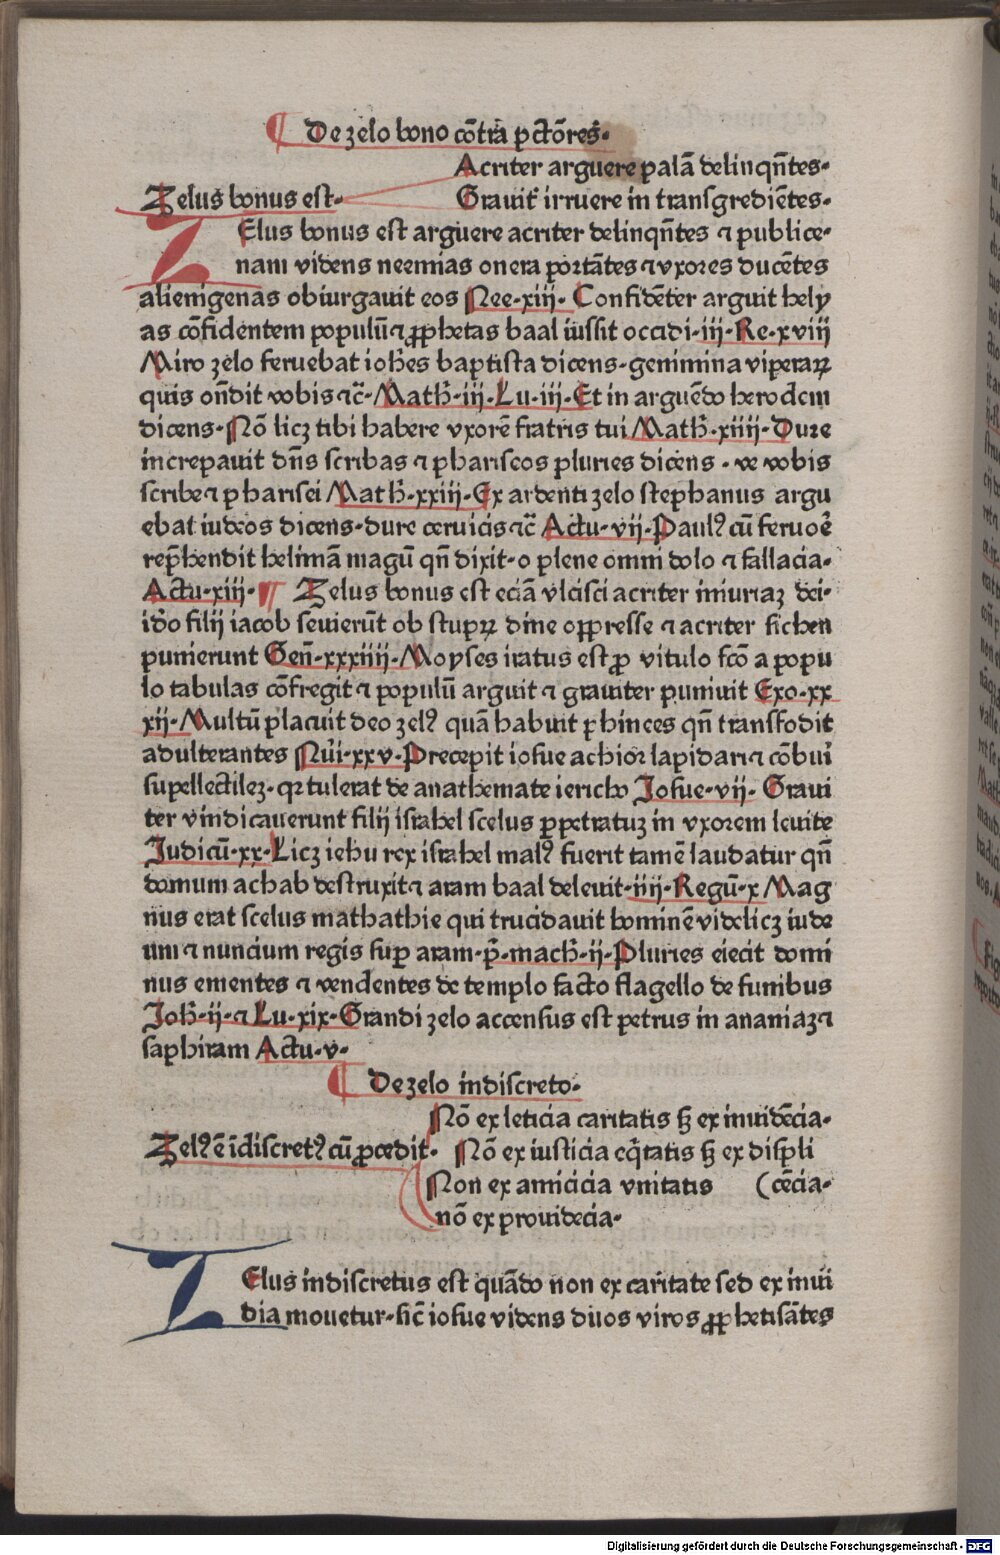 ¶ De zelo bono cōtra pctōres·
Acriter arguere palā delinqn̄tes·
Zelus bonus est·
Grauit̉ irruere in transgrediētes·
ZElus bonus est arguere acriter delinqn̄tes ⁊ publice·
nam videns neemias onera portātes ⁊ vxores ducētes
alienigenas obiurgauit eos Nee·xiii· Confidēter arguit hely
as cōfidentem populū ⁊ ꝓphetas baal iussit occidi·iii·Re·xviii
Miro zelo feruebat ioh̄es baptista dicens·genimina viperaꝝ
quis on̄dit vobis ⁊c̄·Math̄·iii·Lu·iii·Et in arguēdo herodem
dicens·Nō licꝫ tibi habere vxorē fratris tui Math̄·xiiii·Dure
increpauit dn̄s scribas ⁊ phariseos pluries dicens·ve vobis
scribe ⁊ pharisei Math̄·xxiii·Ex ardenti zelo stephanus argu
ebat iudeos dicens·dure ceruicis ⁊c̄ Actu·vii·Paulꝰ cū feruoē
rep̄hendit helimā magū qn̄ dixit·o plene omni dolo ⁊ fallacia·
Actu·xiii·¶ Zelus bonus est eciā vlcisci acriter iniuriaꝫ dei·
id̄o filij iacob seuierūt ob stupꝝ dine oppresse ⁊ acriter sichen
punierunt Gen̄·xxxiiii·Moyses iratus est ꝓ vitulo fc̄o a popu
lo tabulas cōfregit ⁊ populū arguit ⁊ grauiter puniuit Exo·xx
xii·Multū placuit deo zelꝰ quā habuit phinees qn̄ transfodit
adulterantes Nūi·xxv·Precepit iosue achior lapidari ⁊ cōburi
supellectileꝫ·qꝛ tulerat de anathemate iericho Josue·vii· Graui
ter vindicauerunt filij israhel scelus ꝑpetratuꝫ in vxorem leuite
Judicū·xx·Licꝫ iehu rex israhel malꝰ fuerit tamē laudatur qn̄
domum achab destruxit ⁊ aram baal deleuit·iiij·Regū·x Mag
nus erat scelus mathathie qui trucidauit hominē videlicꝫ iude
um ⁊ nuncium regis suꝑ aram·p̄·mach̄·ii·Pluries eiecit domi
nus ementes ⁊ vendentes de templo facto flagello de funibus
Joh̄·ii·⁊ Lu·xix·Grandi zelo accensus est petrus in ananiaꝫ ⁊
saphiram Actu·v·
¶ De zelo indiscreto·
Nō ex leticia caritatis sꝫ ex inuidēcia·
Zelꝰ ē īdiscretꝰ cū ꝓcedit·
Nō ex iusticia eq̄tatis sꝫ ex displi
Non ex amicicia vnitatis (cēcia·
nō ex prouidecia·
ZElus indiscretus est quādo non ex caritate sed ex inui
dia mouetur·sic̄ iosue videns duos viros ꝓphetisātes
Digitalisierung gefördert durch die Deutsche Forschungsgemeinschaft - DFG